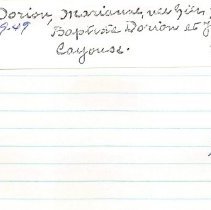 Dorion, Marianne, née
9-49 Baptiste Dorion et
Cayouse.